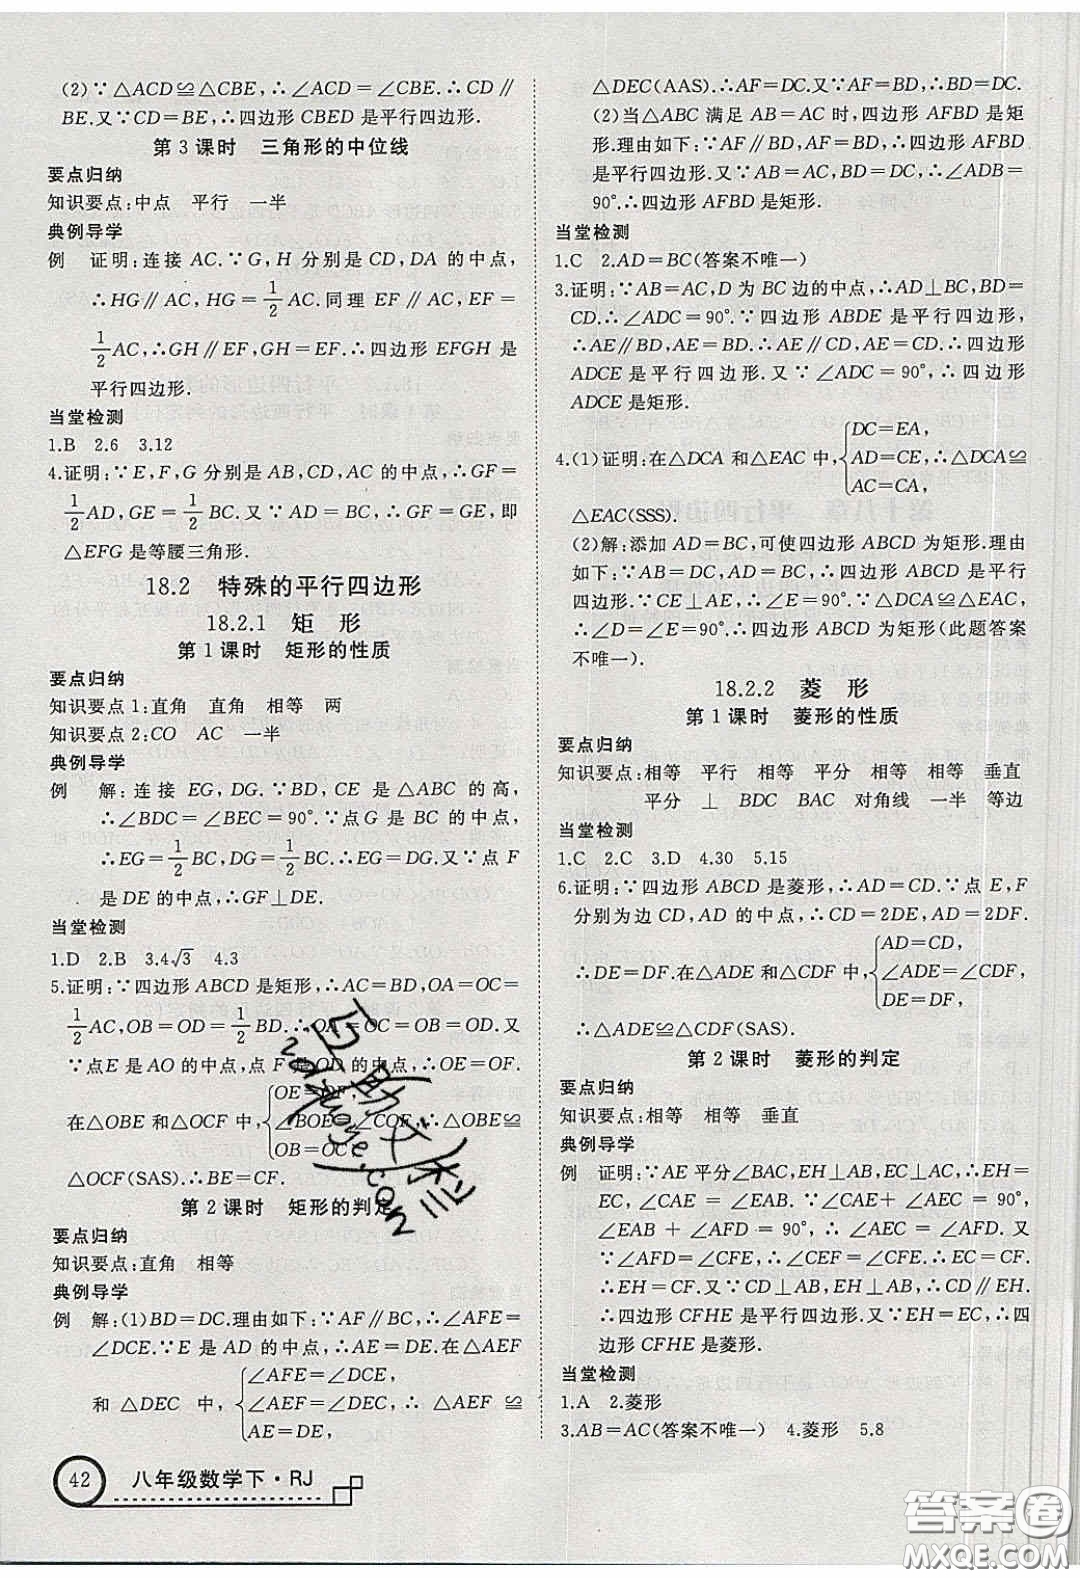 (2)∵△ACD≌△CBE,∴∠ACD=∠CBE.∴CD∥
BE.又∵CD=BE,∴四边形 CBED 是平行四边形.
第 3 课时 三角形的中位线
要点归纳
知识要点:中点 平行 一半
典例导学
例 证明:连接 AC.∵G,H 分别是 CD,DA 的中点,
∴HG∥AC,HG=1/2AC.同理 EF∥AC,EF=
1/2AC,∴GH∥EF,GH=EF.∴四边形 EFGH 是
平行四边形.
当堂检测
1.B 2.6 3.12
4.证明:∵E,F,G 分别是 AB,CD,AC 的中点,∴GF=
1/2AD,GE=1/2BC.又∵AD=BC,∴GF=GE,即
△EFG 是等腰三角形.
18.2 特殊的平行四边形
18.2.1 矩 形
第 1 课时 矩形的性质
要点归纳
知识要点 1:直角 直角 相等 两
知识要点 2:CO AC 一半
典例导学
例 解:连接 EG,DG.∵BD,CE 是△ABC 的高,
∴∠BDC=∠BEC=90°.∵点G 是 BC 的中点,
∴EG=1/2BC,DG=1/2BC.∴EG=DG.又∵点 F
是 DE 的中点,∴GF⊥DE.
当堂检测
1.D 2.B 3.4√3 4.3
5.证明:∵四边形 ABCD 是矩形,∴AC=BD,OA=OC=
1/2AC,OB=OD=1/2BD.∴OA=OC=OB=OD.又
∵点E 是 AO 的中点,点 F 是 OD 的中点,∴OE=OF.
在△OBE 和△OCF 中,{OE=OF,
∠BOE=∠COF,∴△OBE≌
OB=OC,
△OCF(SAS).∴BE=CF.
第 2 课时 矩形的判定
要点归纳
知识要点:直角 相等
典例导学
例 解:(1)BD=DC.理由如下:∵AF∥BC,∴∠AFE=
∠DCE.∵E 是 AD 的中点,∴AE=DE.在△AEF
和△DEC 中,{∠AFE=∠DCE,
∠AEF=∠DEC,∴△AEF≌
AE=DE,
△DEC(AAS).∴AF=DC.又∵AF=BD,∴BD=DC.
(2)当△ABC 满足 AB=AC 时,四边形 AFBD 是矩
形.理由如下:∵AF∥BD,AF=BD,∴四边形
AFBD是平行四边形.又∵AB=AC,BD=DC,∴∠ADB=
90°.∴四边形 AFBD 是矩形.
当堂检测
1.C 2.AD=BC(答案不唯一)
3.证明:∵AB=AC,D 为 BC 边的中点,∴AD⊥BC,BD=
CD.∴∠ADC=90°.∵四边形 ABDE 是平行四边形,
∴AE∥BD,AE=BD.∴AE∥DC,AE=DC.∴四边形
ADCE 是平行四边形.又∵∠ADC=90°,∴四边形
ADCE 是矩形.
4.(1)证明:在△DCA 和△EAC 中,{DC=EA,
AD=CE,∴△DCA≌
AC=CA,
△EAC(SSS).
(2)解:添加 AD=BC,可使四边形 ABCD 为矩形.理由
如下:∵AB=DC,AD=BC,∴四边形 ABCD 是平行
四边形.∵CE⊥AE,∴∠E=90°.∵△DCA≌△EAC,
∴∠D=∠E=90°.∴四边形 ABCD 为矩形(此题答案
不唯一).
18.2.2 菱 形
第 1 课时 菱形的性质
要点归纳
知识要点:相等 平行 相等 平分 相等 相等 垂直
平分 ⊥ BDC BAC 对角线 一半 等边
当堂检测
1.C 2.C 3.D 4.30 5.15
6.证明:∵四边形 ABCD 是菱形,∴AD=CD.∵点 E,F
分别为边 CD,AD 的中点,∴CD=2DE,AD=2DF.
∴DE=DF.在△ADE 和△CDF 中,{AD=CD,
∠ADE=∠CDF,
DE=DF,
∴△ADE≌△CDF(SAS).
第 2 课时 菱形的判定
要点归纳
知识要点:相等 相等 垂直
典例导学
例 证明:∵AE 平分∠BAC,EH⊥AB,EC⊥AC,∴EH=
EC,∠CAE=∠EAB.∵∠CAE+∠AEC=90°,
∠EAB+∠AFD=90°,∴∠AEC=∠AFD.又
∵∠AFD=∠CFE,∴∠CEF=∠CFE.∴EC=CF.
∴EH=CF.又∵CD⊥AB,EH⊥AB,∴CD∥EH.
∴四边形 CFHE 是平行四边形.又∵EH=EC,∴四
边形 CFHE 是菱形.
当堂检测
1.A 2.菱形
3.AB=AC(答案不唯一) 4.菱形 5.8
42 八年级数学下·RJ
答案圈
MXQE.COM